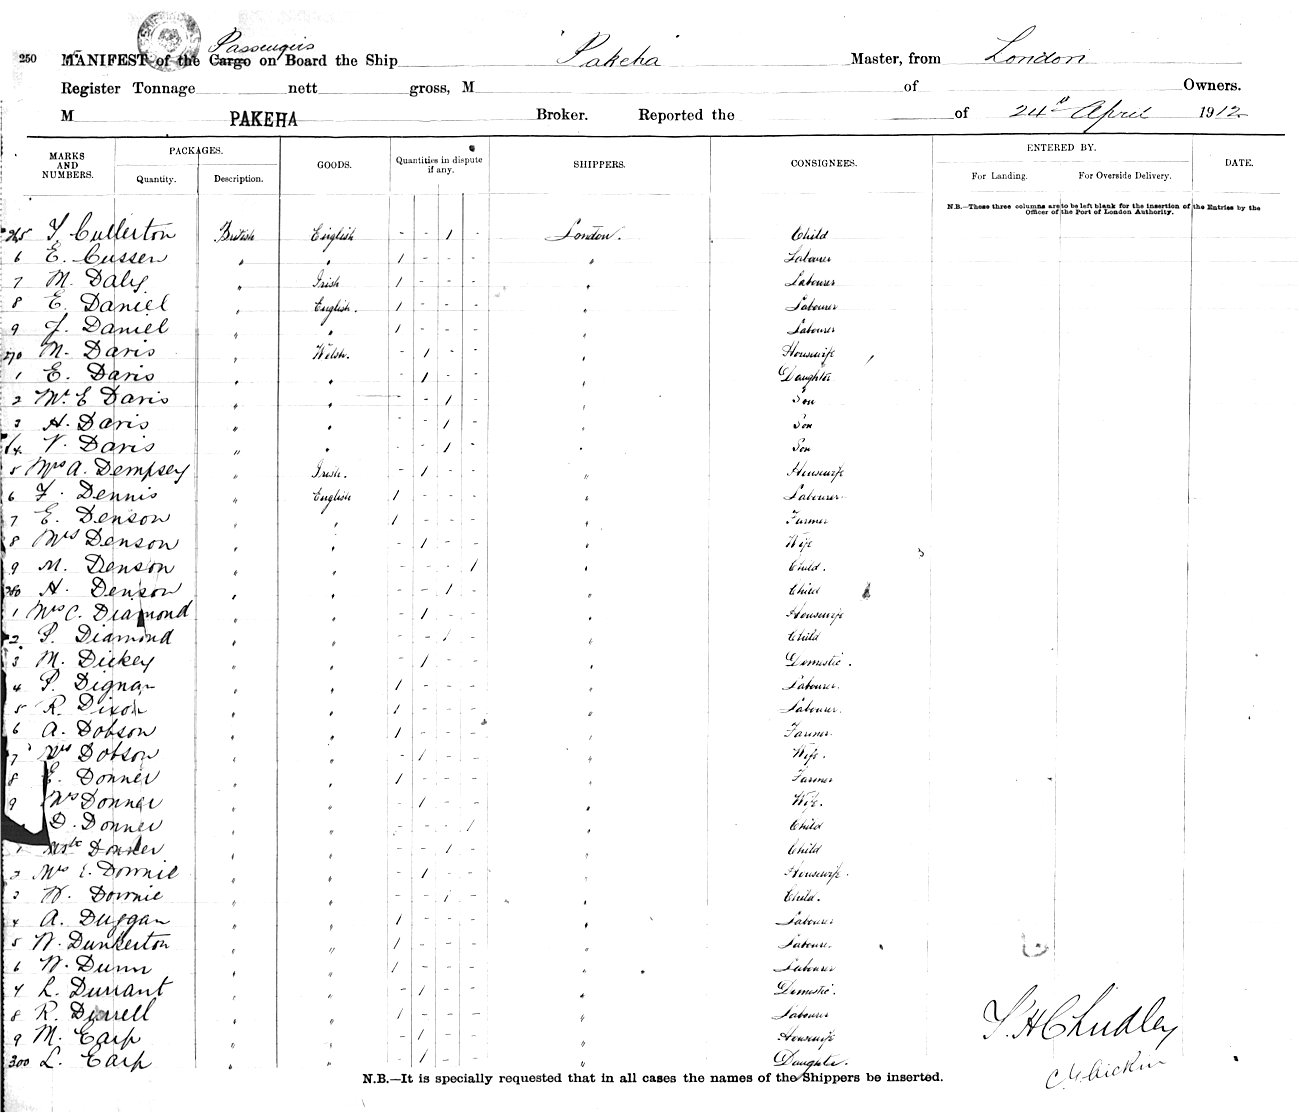 250 MANIFEST of the Cargo Passengers on Board the Ship "Pakeha" Master, from London
Register Tonnage nett gross, M of Owners.
M PAKEHA Broker. Reported the of 24th April 1912
MARKS AND NUMBERS. PACKAGES. Quantity. Description. GOODS. Quantities in dispute if any. SHIPPERS. CONSIGNEES. ENTERED BY. For Landing. For Overside Delivery. DATE.
N.B.—These three columns are to be left blank for the insertion of the Entries by the
Officer of the Port of London Authority.
265 T Cullerton British English - - 1 - London. Child
6 E. Cusser " " 1 - - - " Labourer
7 M. Daly " Irish 1 - - - " Labourer
8 E. Daniel " English. 1 - - - " Labourer
9 J. Daniel " " 1 - - - " Labourer
270 M. Davis " Welsh. - 1 - - " Housewife
1 E. Davis " " - 1 - - " Daughter
2 Mr. E Davis " " - - 1 - " Son
3 H. Davis " " - - 1 - " Son
4 V. Davis " " - - 1 - " Son
5 Mrs A. Dempsey " Irish. - 1 - - " Housewife
6 F. Dennis " English 1 - - - " Labourer
7 E. Denson " " 1 - - - " Farmer
8 Mrs Denson " " - 1 - - " Wife
9 M. Denson " " - - - 1 " Child.
280 H. Denson " " - - 1 - " Child
1 Mrs C. Diamond " " - 1 - - " Housewife
2 P. Diamond " " - - 1 - " Child
3 M. Dickey " " - 1 - - " Domestic.
4 P. Dignan " " 1 - - - " Labourer.
5 R. Dixon " " 1 - - - " Labourer.
6 A. Dobson " " 1 - - - " Farmer.
7 Mrs Dobson " " - 1 - - " Wife.
8 E. Donner " " 1 - - - " Farmer
9 Mrs Donner " " - 1 - - " Wife.
D. Donner " " - - - 1 " Child
1 Donner " " - - 1 - " Child
2 Mrs E. Downie " " - 1 - - " Housewife.
3 W. Downie " " - - 1 - " Child.
4 A. Duggan " " 1 - - - " Labourer
5 W. Dunkerton " " 1 - - - " Labourer.
6 W. Dunn " " 1 - - - " Labourer
7 L. Durrant " " - 1 - - " Domestic.
8 R. Durrell " " 1 - - - " Labourer
9 M. Earp " " - 1 - - " Housewife
300 L. Earp " " - 1 - - " Daughter.
T H Chudley
N.B.—It is specially requested that in all cases the names of the Shippers be inserted.